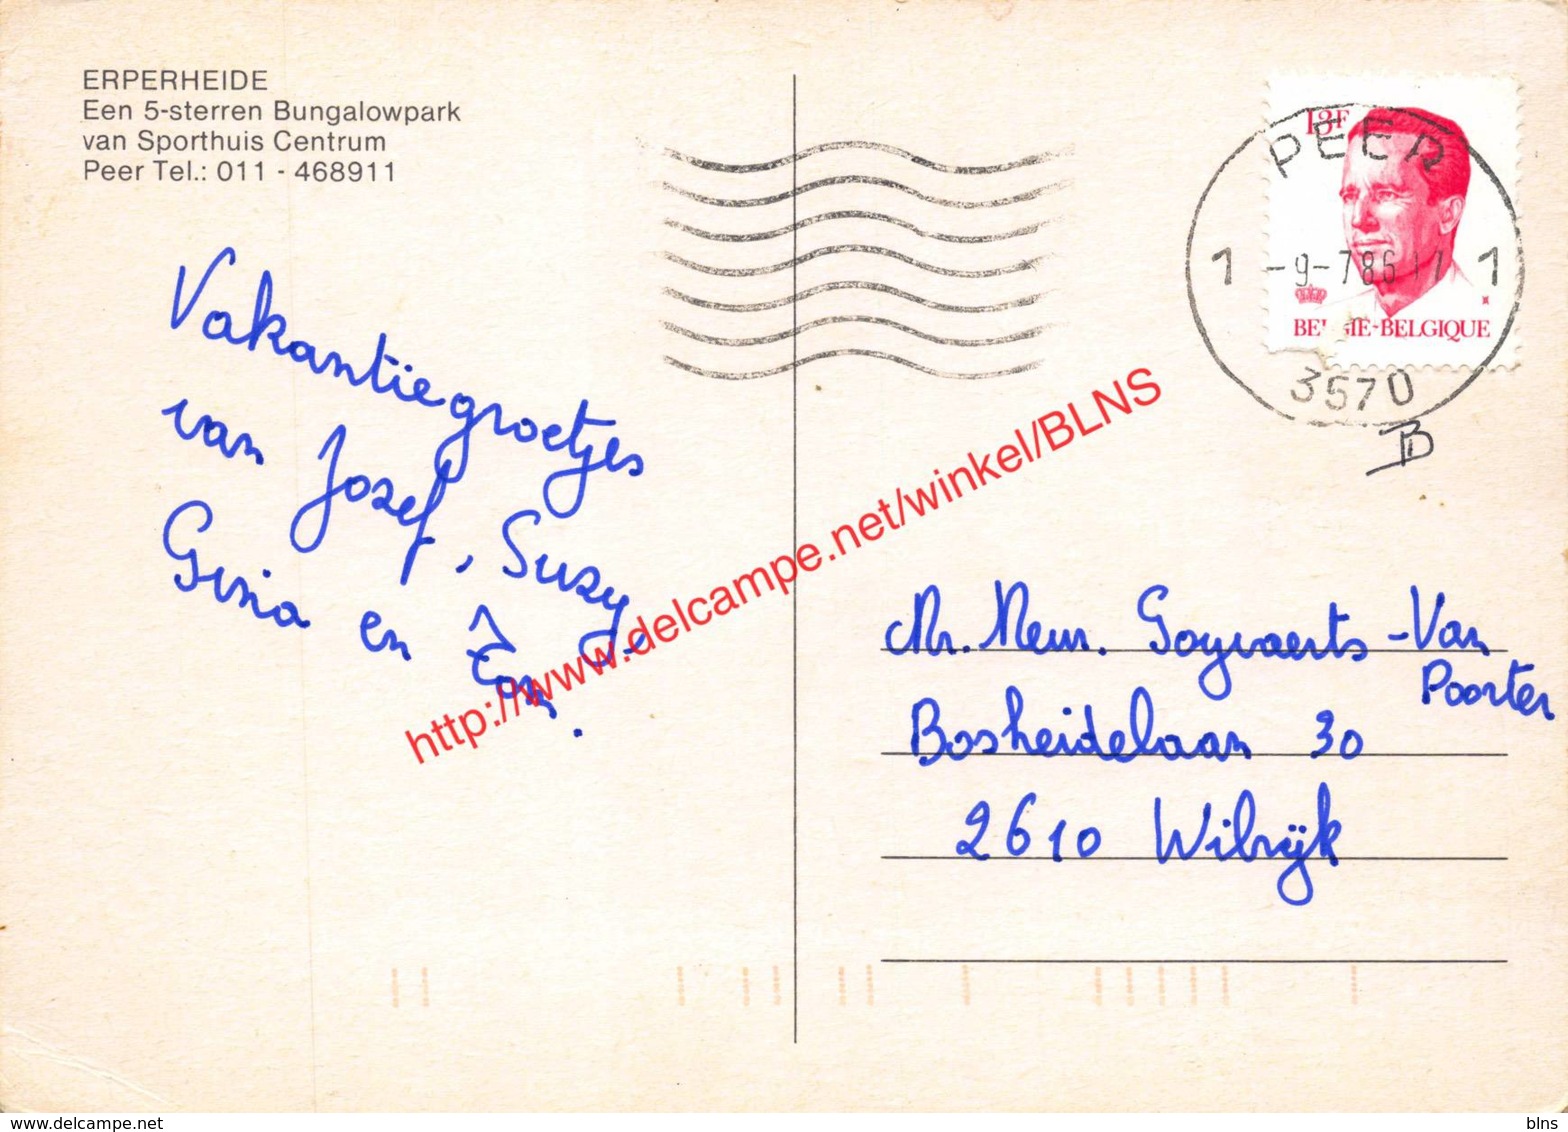 ERPERHEIDE
Een 5-sterren Bungalowpark
van Sporthuis Centrum
Peer Tel.: 011 - 468911
Vakantiegroetjes
van Jozef, Suzy,
Gina en
13F
PEER
1 -9-786 17 1
BELGIE-BELGIQUE
3570
Mr. Mevr. Goyvaerts -Van
Poorter
Bosheidelaan 30
2610 Wilrijk
http://www.delcampe.net/winkel/BLNS
www.delcampe.net
blns